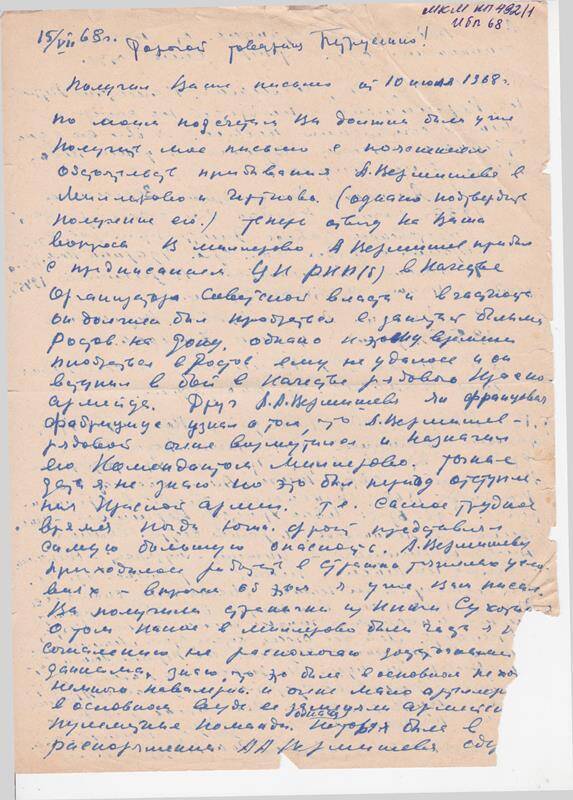 МКМ КП 492/1
ИВП 68
15/VII 68 г. Дорогой товарищ
Получил Ваше письмо от 10 июля 1968 г.
По моим подсчетам Вы должны были уже
получить мое письмо с пояснением
обстоятельств пребывания А. Вермишева в
Миллерово и Чертково. (однако подтвердите
получение его.) Теперь ответ на Ваши
вопросы. В Миллерово А. Вермишев прибыл
с предписанием ЦК РКП(б) в качестве
организатора Советской власти и в частности
он должен был пробраться в занятый белыми
Ростов на Дону, однако к тому времени
пробраться в Ростов ему не удалось и он
вступил в бой в качестве рядового Красно-
армейца. Друг А.А. Вермишева
узнал о том, что А. Вермишев -
рядовой очень возмутился и назначил
его Комендантом Миллерово. Точные
даты я не знаю но это был период отступле-
ния Красной армии. т.е. самое трудное
время когда Южн. фронт представлял
самую большую опасность. А. Вермишеву
приходилось работать в страшно тяжелых усло-
виях - впрочем об этом я уже Вам писал.
Вы получили странички из книги
О том какие в Миллерово были части я к
сожалению не располагаю
данными, знаю, что это была в основном пехота
немного кавалерии и очень мало артиллерии
в основном
пулеметные команды. которая была в
распоряжении А.А. Вермишева